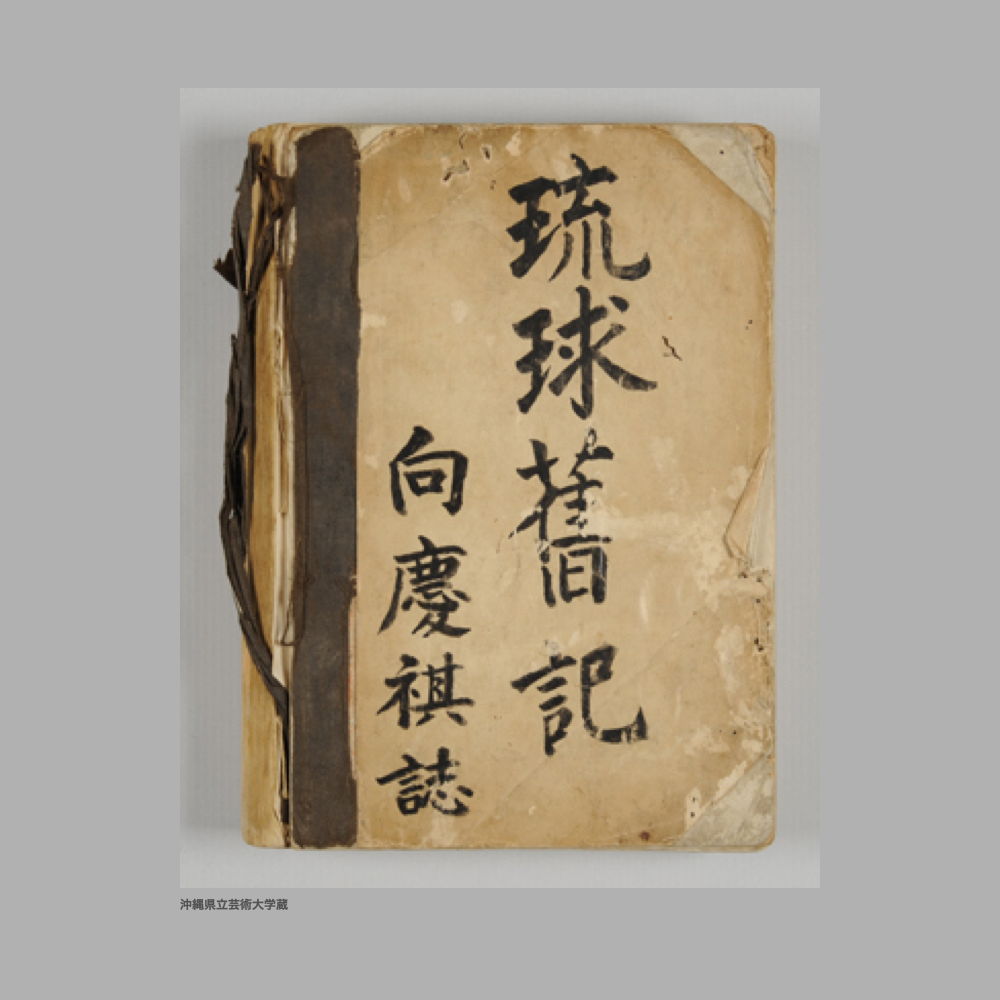 琉球舊記
向慶祺誌
沖縄県立芸術大学蔵